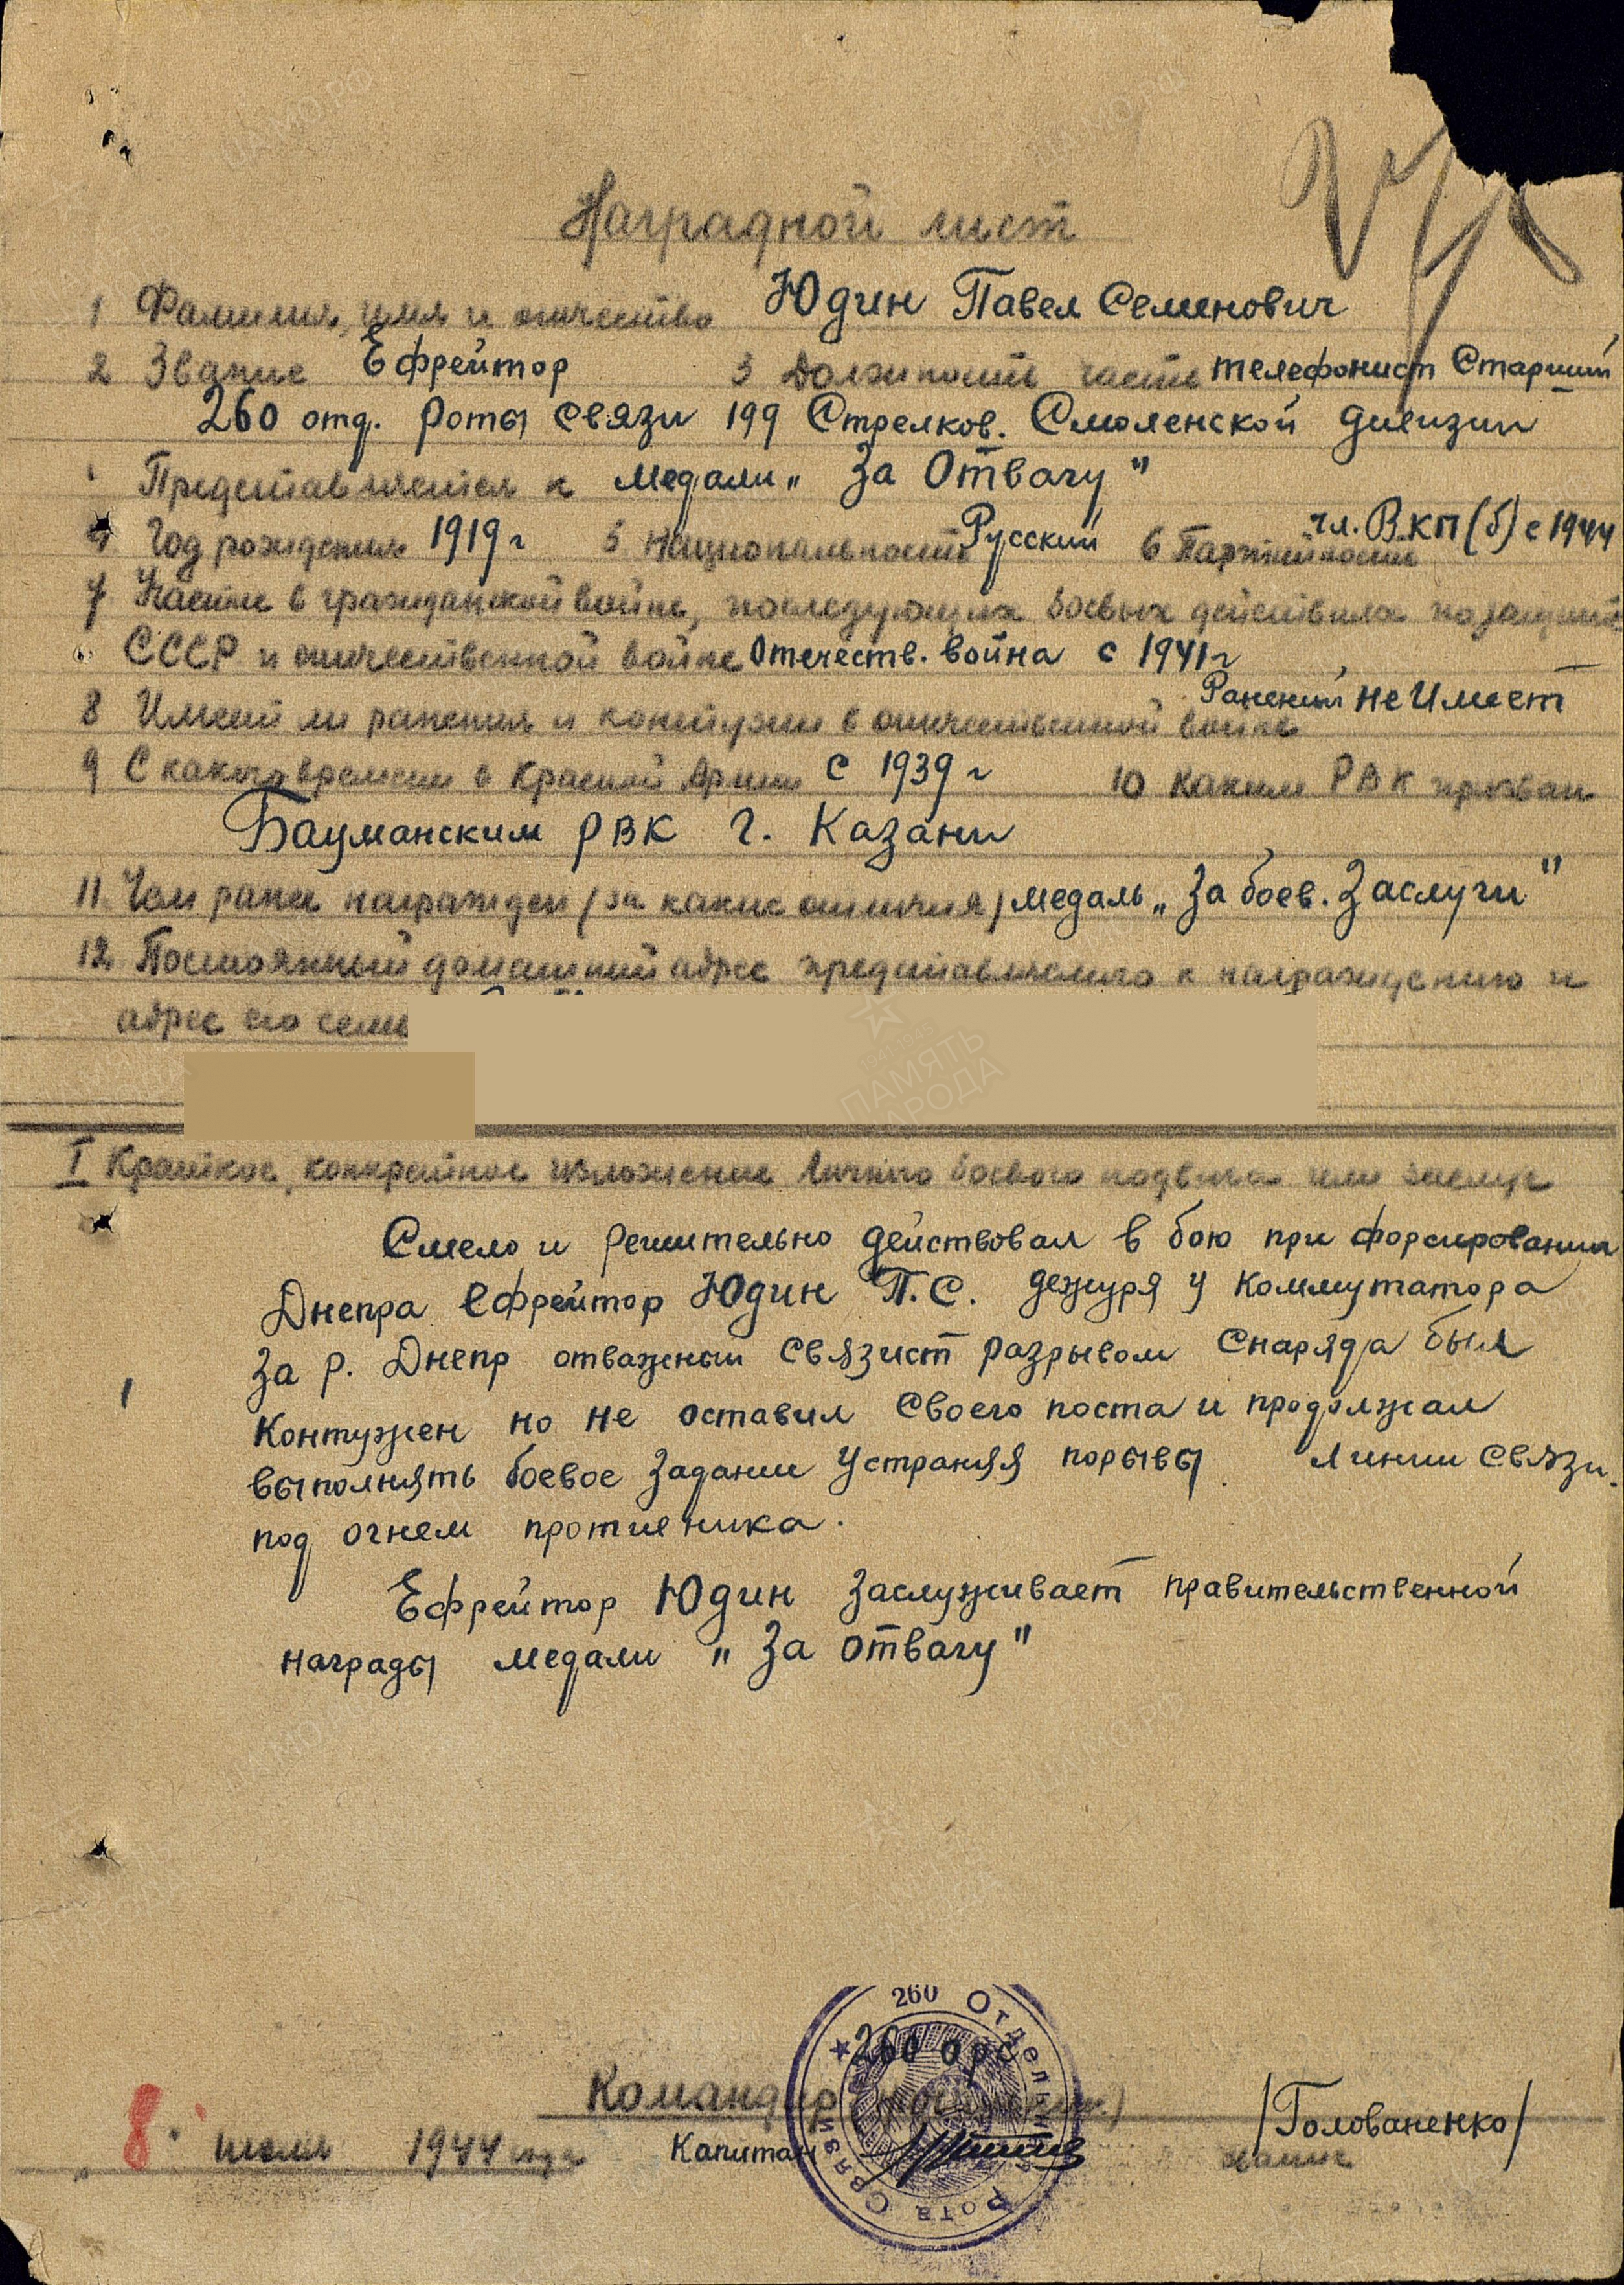 Наградной лист
1 Фамилия, имя и отчество Юдин Павел Семенович
2 Звание Ефрейтор 3 Должность часть телефонист Старший
260 отд. роты связи 199 Стрелков. Смоленской дивизии
Представляется к медали „За Отвагу"
4 Год рождения 1919 г 5 Национальность Русский 6 Партийность чл. ВКП(б) с 1944
7 Участие в гражданской войне, последующих боевых действиях по защите
СССР и отечественной войне Отечеств. война с 1941 г
8 Имеет ли ранения и контузии в отечественной войне Ранений не имеет
9 С какого времени в Красной Армии с 1939 г 10 Каким РВК призван
Бауманским РВК г. Казани
11 Чем ранее награжден (за какие отличия) медаль „За боев. Заслуги"
12 Постоянный домашний адрес представляемого к награждению и
адрес его семьи
I Краткое, конкретное изложение личного боевого подвига или заслуг
Смело и решительно действовал в бою при форсировании
Днепра ефрейтор Юдин П.С. дежуря у коммутатора
за р. Днепр отважный связист разрывом снаряда был
контужен но не оставил своего поста и продолжал
выполнять боевое задании устраняя порывы линии связи.
под огнем противника.
Ефрейтор Юдин заслуживает правительственной
награды медали „За отвагу"
260 Отдельная Рота Связи
260 орс
Командир
Капитан /Голованенко/
„8" июля 1944 года
ПАМЯТЬ НАРОДА
ЦАМО.РФ